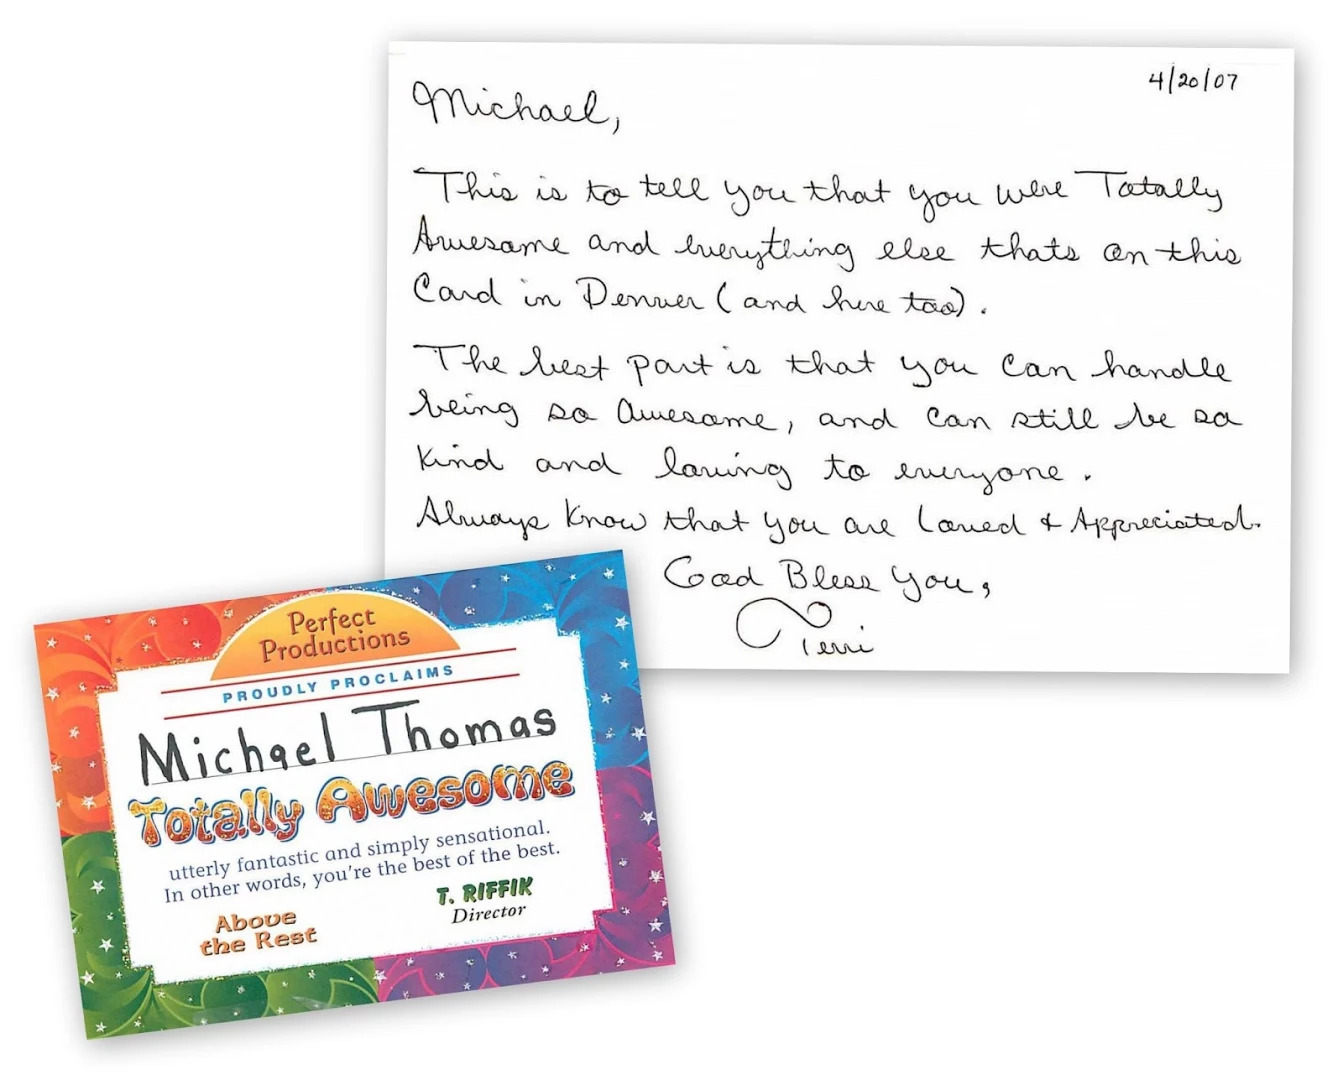 4/20/07
Michael,
This is to tell you that you were Totally
Awesome and everything else thats on this
Card in Denver (and here too).
The best part is that you can handle
being so awesome, and can still be so
kind and loving to everyone.
Always know that you are Loved & Appreciated.
God Bless You,
Terri
Perfect
Productions
PROUDLY PROCLAIMS
Michael Thomas
Totally Awesome
utterly fantastic and simply sensational.
In other words, you're the best of the best.
Above
the Rest
T. RIFFIK
Director